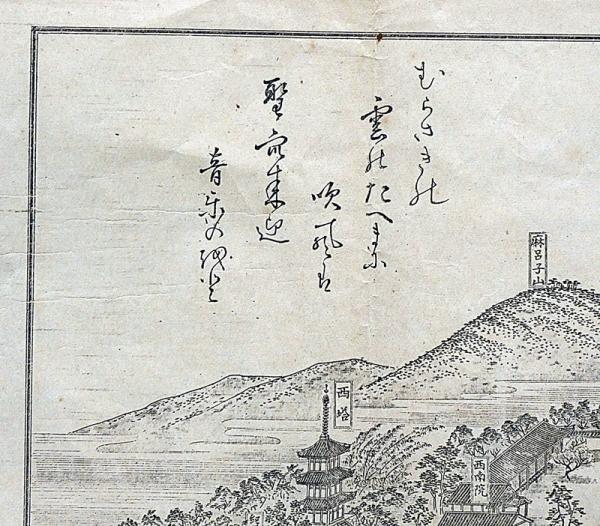 むらさきの
雲のたへまに
吹風は
聖衆来迎
音楽の
麻呂子山
西塔
西南院